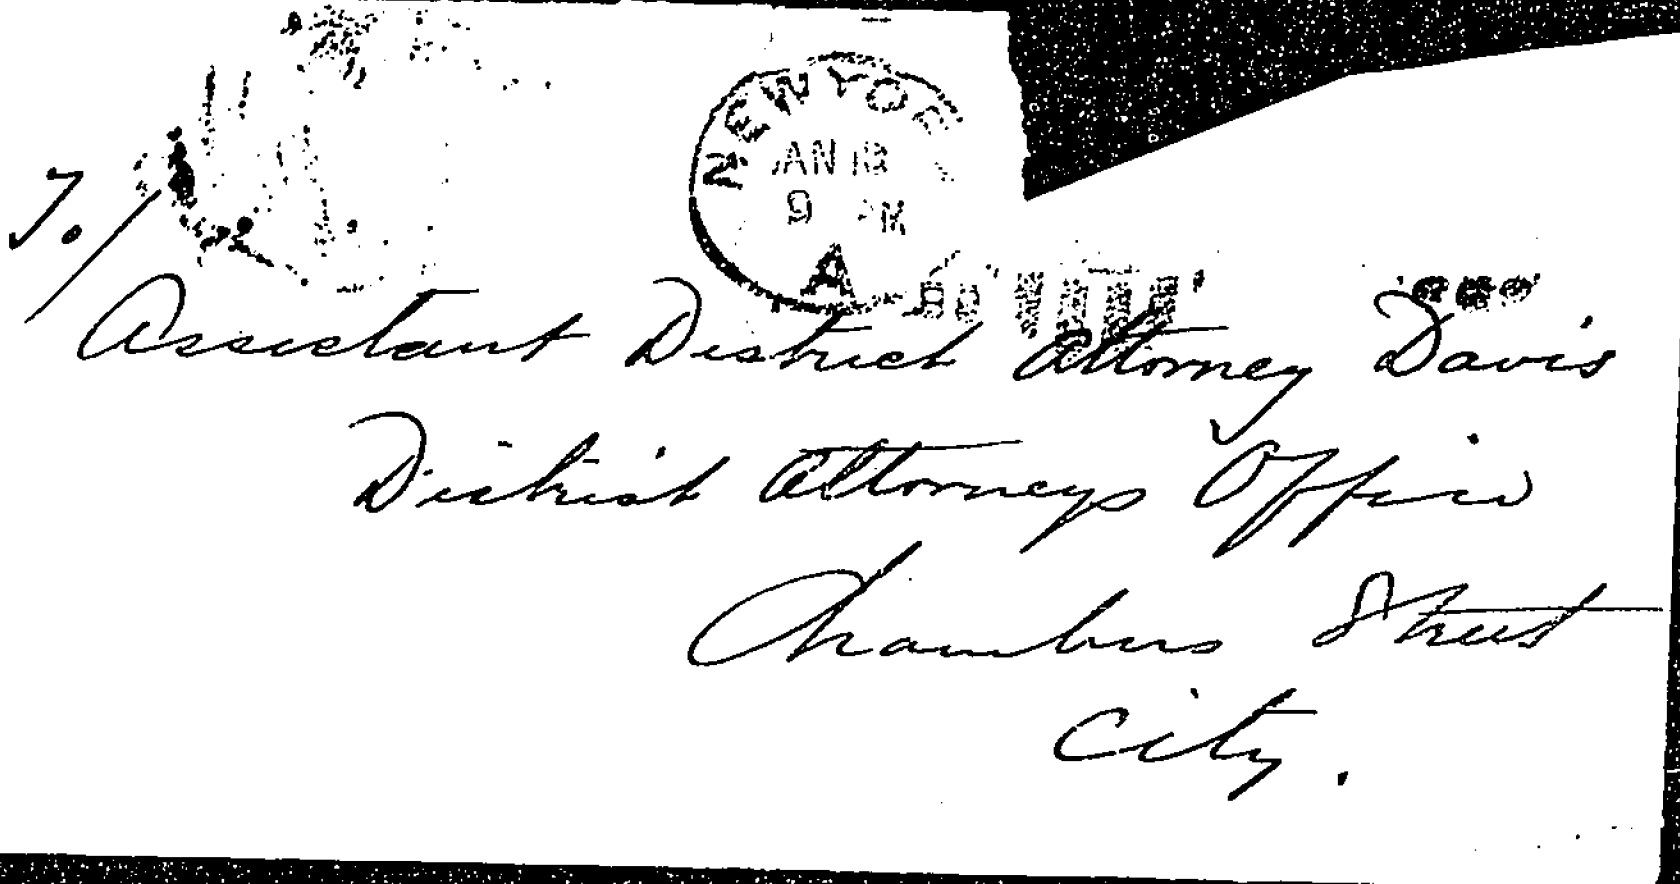 NEW YOR
JAN 18
9 PM
A
To/
Assistant District Attorney Davis
District Attorneys Office
Chambers Street
City.